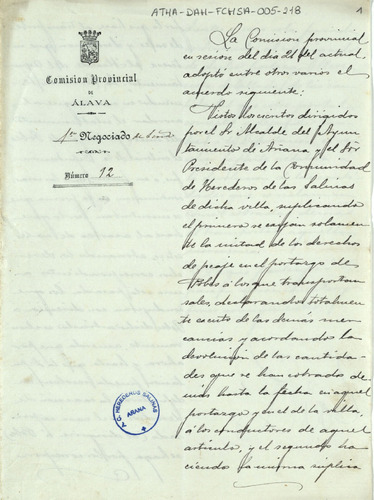 ATHA-DAH-FCHSA-005-218
1
Comision Provincial
DE
ÁLAVA
1er Negociado de
Número 12
La Comision provincial
en sesion del dia 21 del actual,
adoptó entre otros varios el
acuerdo siguiente:
Vistos los escritos dirigidos
por el Sr Alcalde del Ayun-
tamiento de Añana y el Sor
Presidente de la Comunidad
de Herederos de las Salinas
de dicha villa, suplicando
el primero se exijan solamen-
te la mitad de los derechos
de peaje en el portazgo de
Pobes á los que transportan
sales, declarandos totalmen-
te esento de las demás mer-
cancias y acordando la
devolucion de las cantida-
des que se han cobrado de-
mas hasta la fecha en aquel
portazgo y en el de la villa,
á los conductores de aquel
articulo, y el segundo ha-
ciendo la misma súplica
HEREDEROS SALINAS
AÑANA